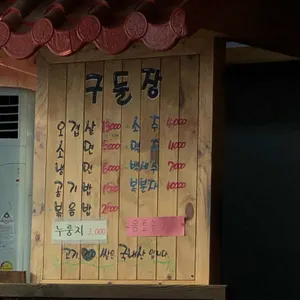 구들장
오겹살 13000 소주 4000
소면 5000 맥주 4000
냉면 6000 백세주 7000
공기밥 1000 복분자 10000
볶음밥 2500
누룽지 3,000 음료수
고기 쌀은 국내산 입니다